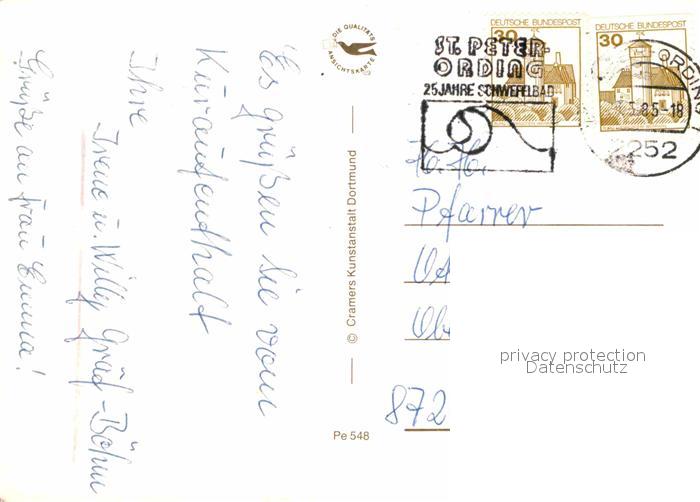 Es grüßen Sie vom
Kuraufendhalt
Ihre
Irene u. Willy Gräf-Böhm
Grüße an Frau Emma!
DIE QUALITÄTS
ANSICHTSKARTE
© Cramers Kunstanstalt Dortmund
Pe 548
DEUTSCHE BUNDESPOST
30
DEUTSCHE BUNDESPOST
30
ST. PETER-
ORDING
25 JAHRE SCHWEFELBAD
ORDING
85-18
2252
Pfarrer
872
privacy protection
Datenschutz